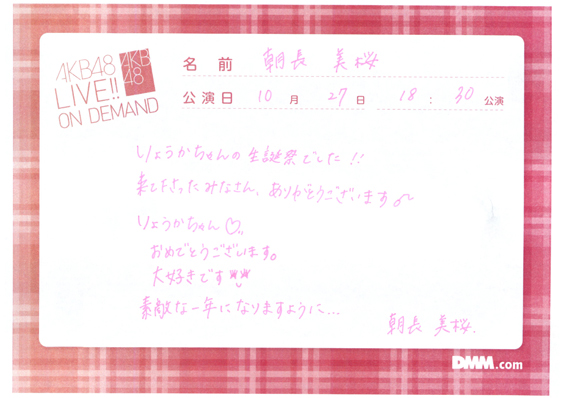 AKB48
LIVE!!
ON DEMAND
AKB
48
名 前 朝長 美桜
公演日 10 月 27 日 18 : 30 公演
りょうかちゃんの生誕祭でした!!
来て下さったみなさん、ありがとうございます
りょうかちゃん♡
おめでとうございます。
大好きです
素敵な一年になりますように...
朝長 美桜.
DMM.com